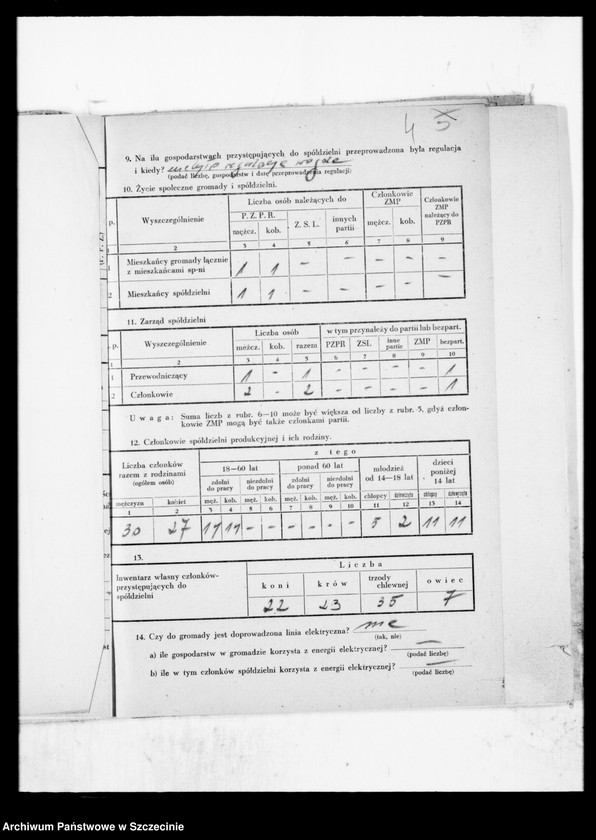 4 5
9. Na ilu gospodarstwach przystępujących do spółdzielni przeprowadzona była regulacja
i kiedy?
(podać liczbę, gospodarstw i datę przeprowadzenia regulacji)
10. Życie społeczne gromady i spółdzielni.
p. Wyszczególnienie Liczba osób należących do Członkowie ZMP Członkowie ZMP należący do PZPR
P. Z. P. R. Z. S. L. innych partii mężcz. kob.
mężcz. kob.
1 2 3 4 5 6 7 8 9
1 Mieszkańcy gromady łącznie z mieszkańcami sp-ni 1 1 – – – – –
2 Mieszkańcy spółdzielni 1 1 – – – –
11. Zarząd spółdzielni
p. Wyszczególnienie Liczba osób w tym przynależy do partii lub bezpart.
mężcz. kob. razem PZPR ZSL inne partie ZMP bezpart.
1 2 3 4 5 6 7 8 9 10
1 Przewodniczący 1 - 1 - - - - 1
2 Członkowie 2 - 2 - - - - 1
Uwaga: Suma liczb z rubr. 6—10 może być większa od liczby z rubr. 5, gdyż człon-
kowie ZMP mogą być także członkami partii.
12. Członkowie spółdzielni produkcyjnej i ich rodziny.
Liczba członków razem z rodzinami (ogółem osób) z tego
18—60 lat ponad 60 lat młodzież od 14—18 lat dzieci poniżej 14 lat
zdolni do pracy niezdolni do pracy zdolni do pracy niezdolni do pracy
mężczyzn kobiet męż. kob. męż. kob. męż. kob. męż. kob. chłopcy dziewczęta chłopcy dziewczęta
1 2 3 4 5 6 7 8 9 10 11 12 13 14
30 27 - - - - - - 5 2 11 11
13.
Inwentarz własny członków- przystępujących do spółdzielni Liczba
koni krów trzody chlewnej owiec
22 23 35 7
14. Czy do gromady jest doprowadzona linia elektryczna? nie
(tak, nie)
a) ile gospodarstw w gromadzie korzysta z energii elektrycznej? —
(podać liczbę)
b) ile w tym członków spółdzielni korzysta z energii elektrycznej? —
(podać liczbę)
Archiwum Państwowe w Szczecinie